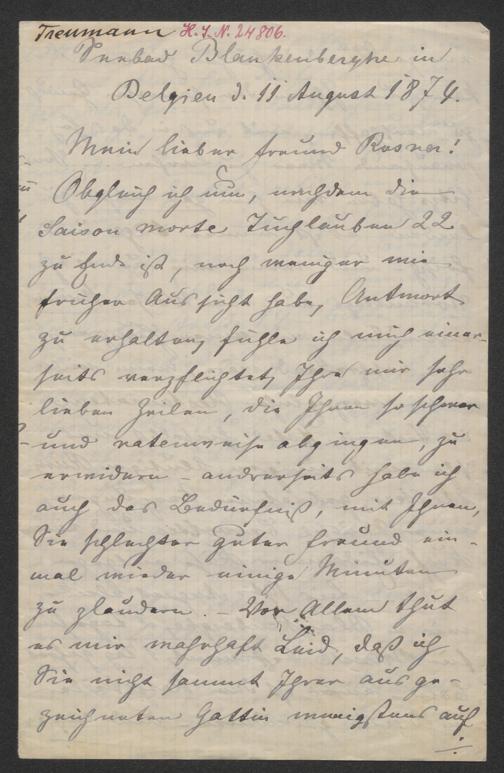 Treumann H. I. N. 24806.
Seebad Blankenberghe in
Belgien d. 11 August 1874.
Mein lieber Freund Rosner!
Obgleich ich nun, nachdem die
Saison morte Tuchlauben 22
zu Ende ist, noch weniger wie
früher Aussicht habe, Antwort
zu erhalten, fühle ich mich einer-
seits verpflichtet, Ihre mir sehr
lieben Zeilen, die Ihnen so schwer
und ratenweise abgingen, zu
erwidern – andrerseits habe ich
auch das Bedürfniß, mit Ihnen,
Sie schlechter guter Freund ein-
mal wieder einige Minuten
zu plaudern. – Vor Allem thut
es mir wahrhaft Leid, daß ich
Sie nicht sammt Ihrer ausge-
zeichneten Gattin wenigstens auf